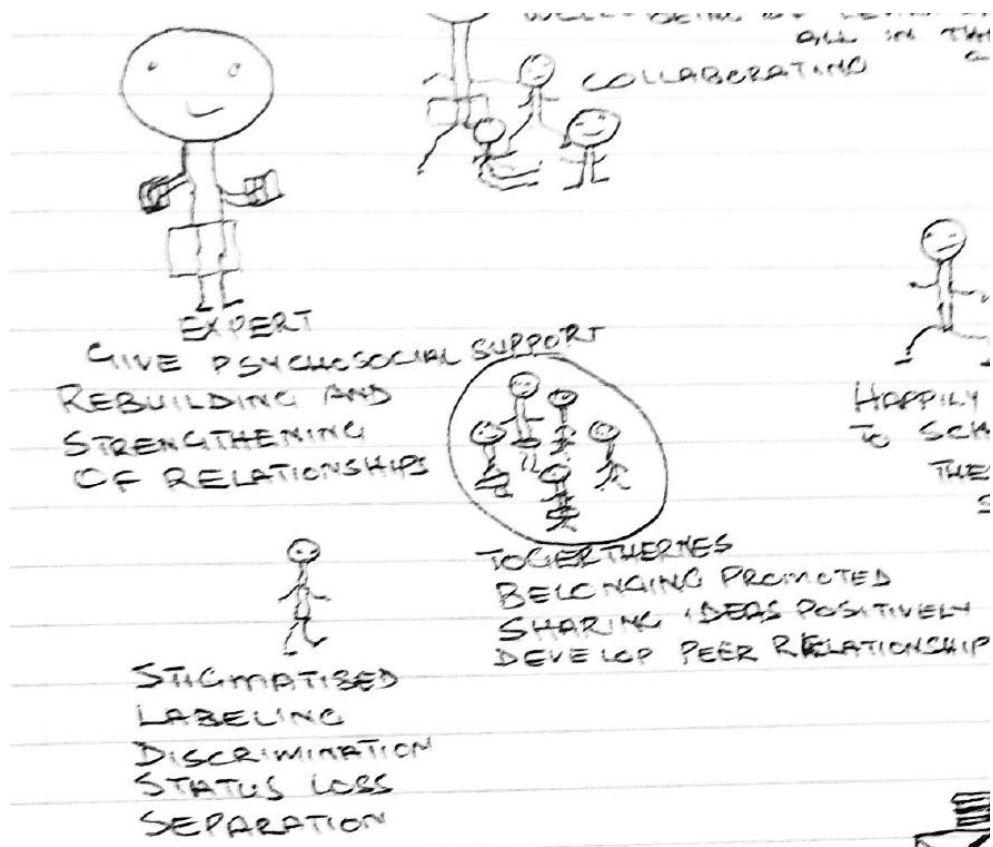 WELL-BEING OF
ALL IN
COLLABORATING
EXPERT
GIVE PSYCHOSOCIAL SUPPORT
REBUILDING AND
STRENGTHENING
OF RELATIONSHIPS
HAPPILY
TO
TOGERTHERNES
BELONGING PROMOTED
SHARING IDEAS POSITIVELY
DEVELOP PEER RELATIONSHIP
STIGMATISED
LABELING
DISCRIMINATION
STATUS LOSS
SEPARATION